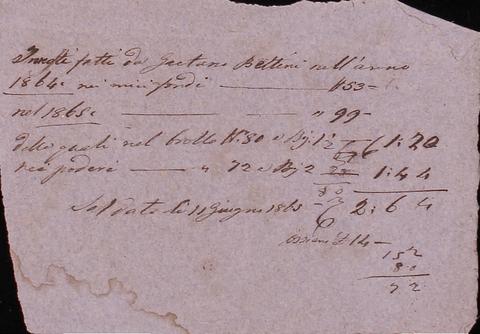 Innesti fatti da Gaetano Bettini nell'anno
1864 nei miei fondi — N 53 -
nel 1865 — — " 99 -
delle quali nel brollo N. 80 a Bj. 1½ 1:20
nei poderi — " 72 a Bj 2 1:44
80 2:64
Saldato li 11 Giugno 1865
£ 14 -
152
80
72